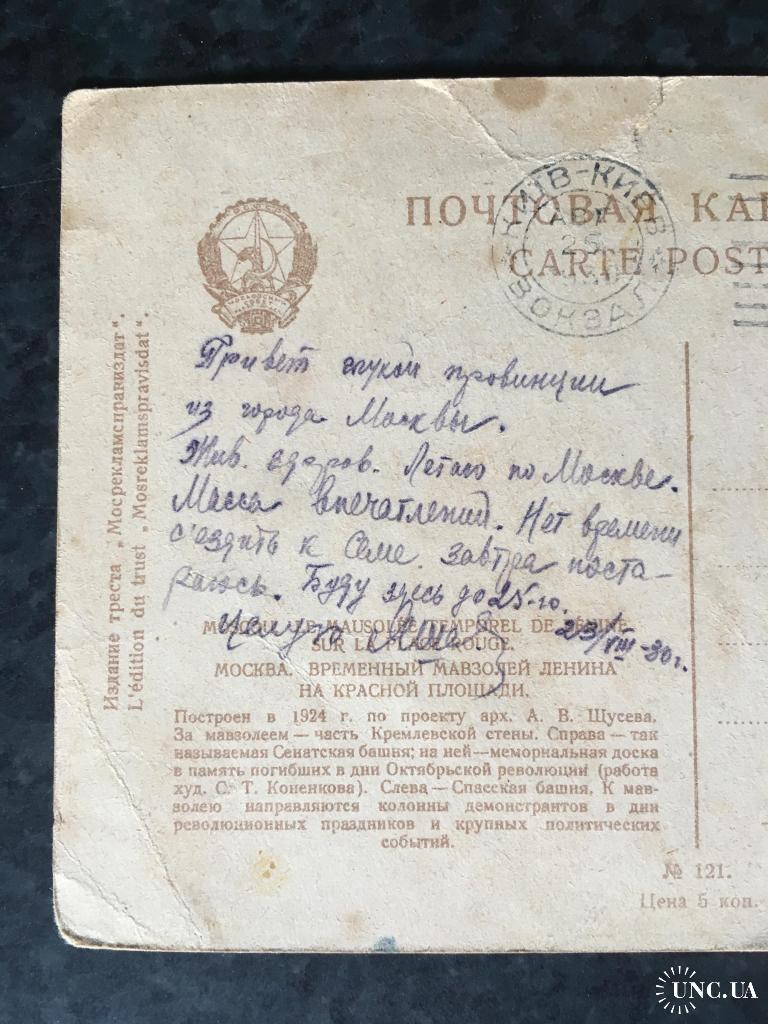 ПОЧТОВАЯ КАР
CARTE POST
КИЇВ-КИЕВ
АВГ
25
ВОКЗАЛ
Издание треста „Мосрекламсправиздат“.
L'édition du trust „Mosreklamspravisdat“.
Привет глухой провинции
из города Москвы.
Жив. здоров. Летаю по Москве.
Масса впечатлений. Нет времени
съездить к Семе. Завтра поста-
раюсь. Буду здесь до 25-го.
Целую
23/VIII-30г.
MOSCOU. LE MAUSOLÉE TEMPOREL DE LÉNINE
SUR LA PLACE ROUGE.
МОСКВА. ВРЕМЕННЫЙ МАВЗОЛЕЙ ЛЕНИНА
НА КРАСНОЙ ПЛОЩАДИ.
Построен в 1924 г. по проекту арх. А. В. Щусева.
За мавзолеем — часть Кремлевской стены. Справа — так
называемая Сенатская башня; на ней—мемориальная доска
в память погибших в дни Октябрьской революции (работа
худ. С. Т. Коненкова). Слева — Спасская башня. К мав-
золею направляются колонны демонстрантов в дни
революционных праздников и крупных политических
событий.
№ 121.
Цена 5 коп.
UNC.UA